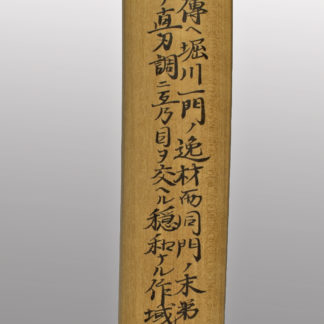 傳ヘ堀川一門ノ逸材而同門ノ末弟
直刃調ニ互乃目ヲ交ヘル穏和ナル作域